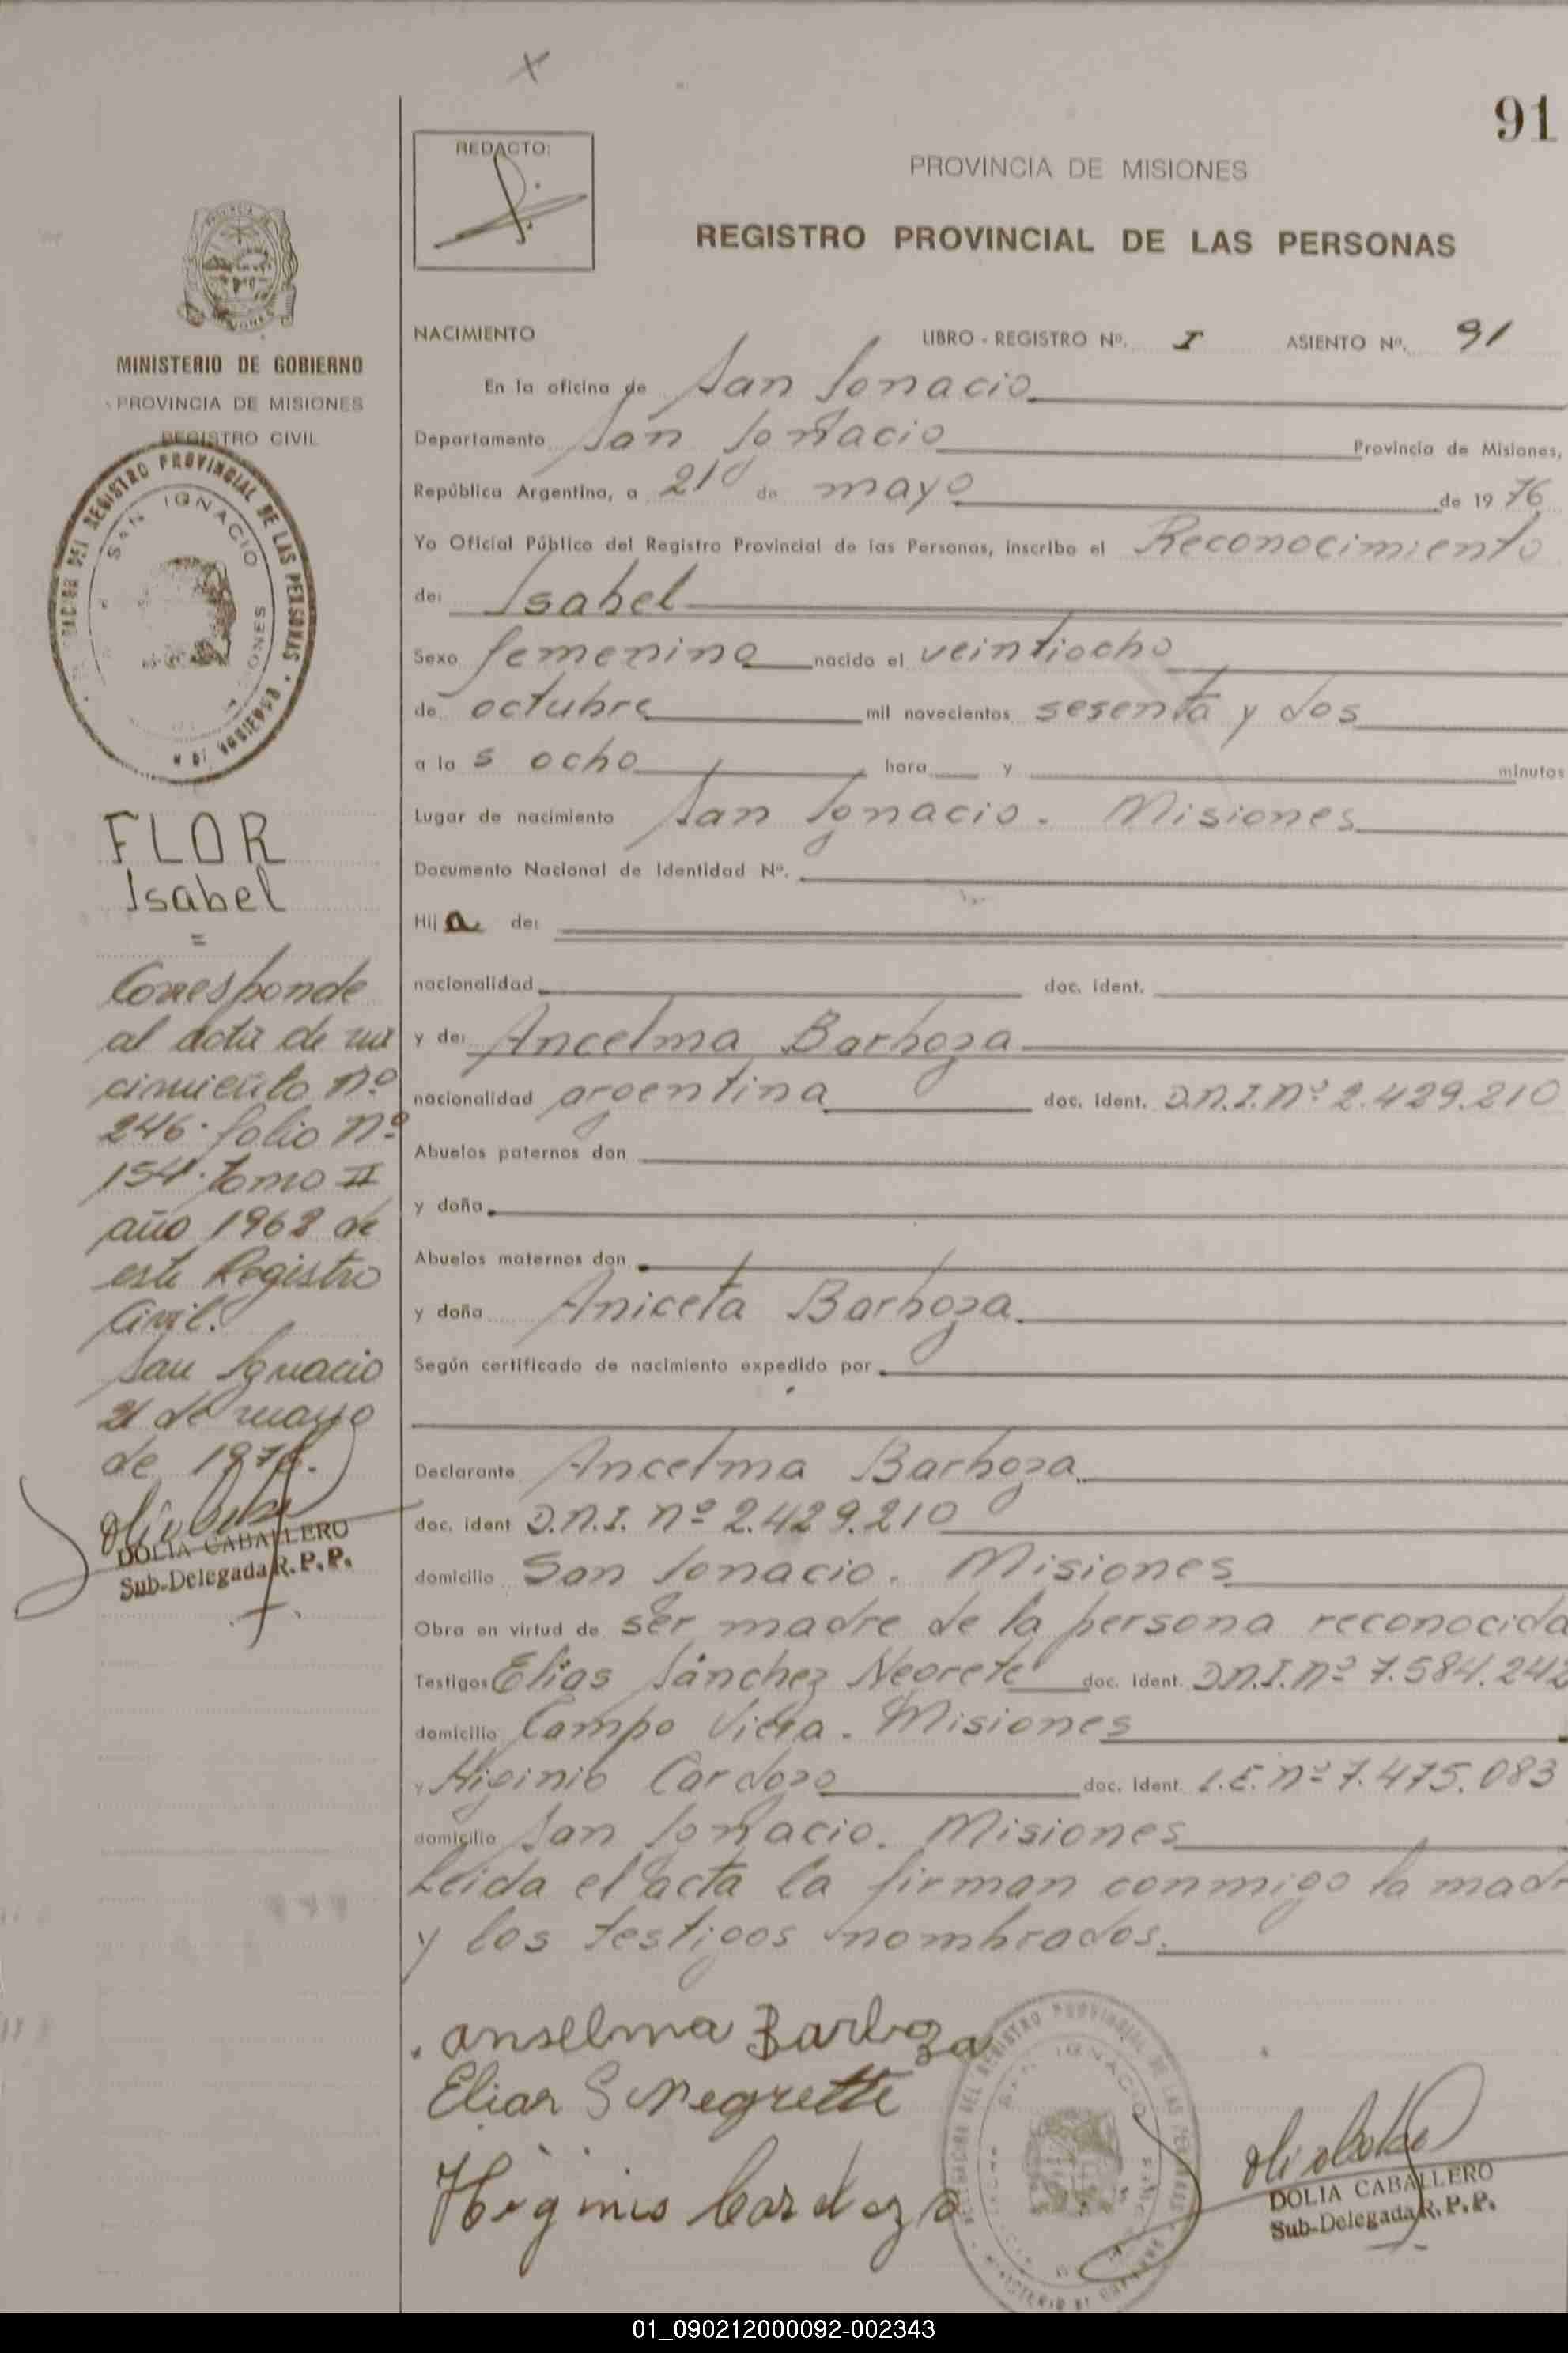 91
REDACTO:
PROVINCIA DE MISIONES
REGISTRO PROVINCIAL DE LAS PERSONAS
MINISTERIO DE GOBIERNO
PROVINCIA DE MISIONES
REGISTRO CIVIL
REGISTRO PROVINCIAL DE LAS PERSONAS
SAN IGNACIO
FLOR
Isabel
=
Corresponde
al acta de na
cimiento Nº
246. folio Nº
154. tomo II
año 1962 de
este Registro
Civil.
San Ignacio
21 de mayo
de 1976.
DOLIA CABALLERO
Sub-Delegada R.P.P.
NACIMIENTO LIBRO - REGISTRO Nº. I ASIENTO Nº. 91
En la oficina de San Ignacio
Departamento San Ignacio Provincia de Misiones,
República Argentina, a 21 de mayo de 1976
Yo Oficial Público del Registro Provincial de las Personas, inscribo el Reconocimiento
de: Isabel
Sexo femenino nacido el veintiocho
de octubre mil novecientos sesenta y dos
a las ocho hora y minutos
Lugar de nacimiento San Ignacio. Misiones
Documento Nacional de Identidad Nº.
Hija de:
nacionalidad doc. ident.
y de: Ancelma Barboza
nacionalidad argentina doc. ident. D.N.I. Nº 2.429.210
Abuelos paternos don
y doña
Abuelos maternos don
y doña Aniceta Barboza
Según certificado de nacimiento expedido por
Declarante Ancelma Barboza
doc. ident D.N.I. Nº 2.429.210
domicilio San Ignacio. Misiones
Obra en virtud de ser madre de la persona reconocida
Testigos Elías Sánchez Negrete doc. ident. D.N.I. Nº 7.584.242
domicilio Campo Viera. Misiones
y Higinio Cardozo doc. ident. L.E. Nº 7.475.083
domicilio San Ignacio. Misiones
Leida el acta la firman conmigo la madr
y los testigos nombrados.
anselma Barboza
Elias S Negrette
Higinio Cardozo
DELEGACION DEL REGISTRO PROVINCIAL DE LAS PERSONAS
SAN IGNACIO
DOLIA CABALLERO
Sub-Delegada R.P.P.
01_090212000092-002343